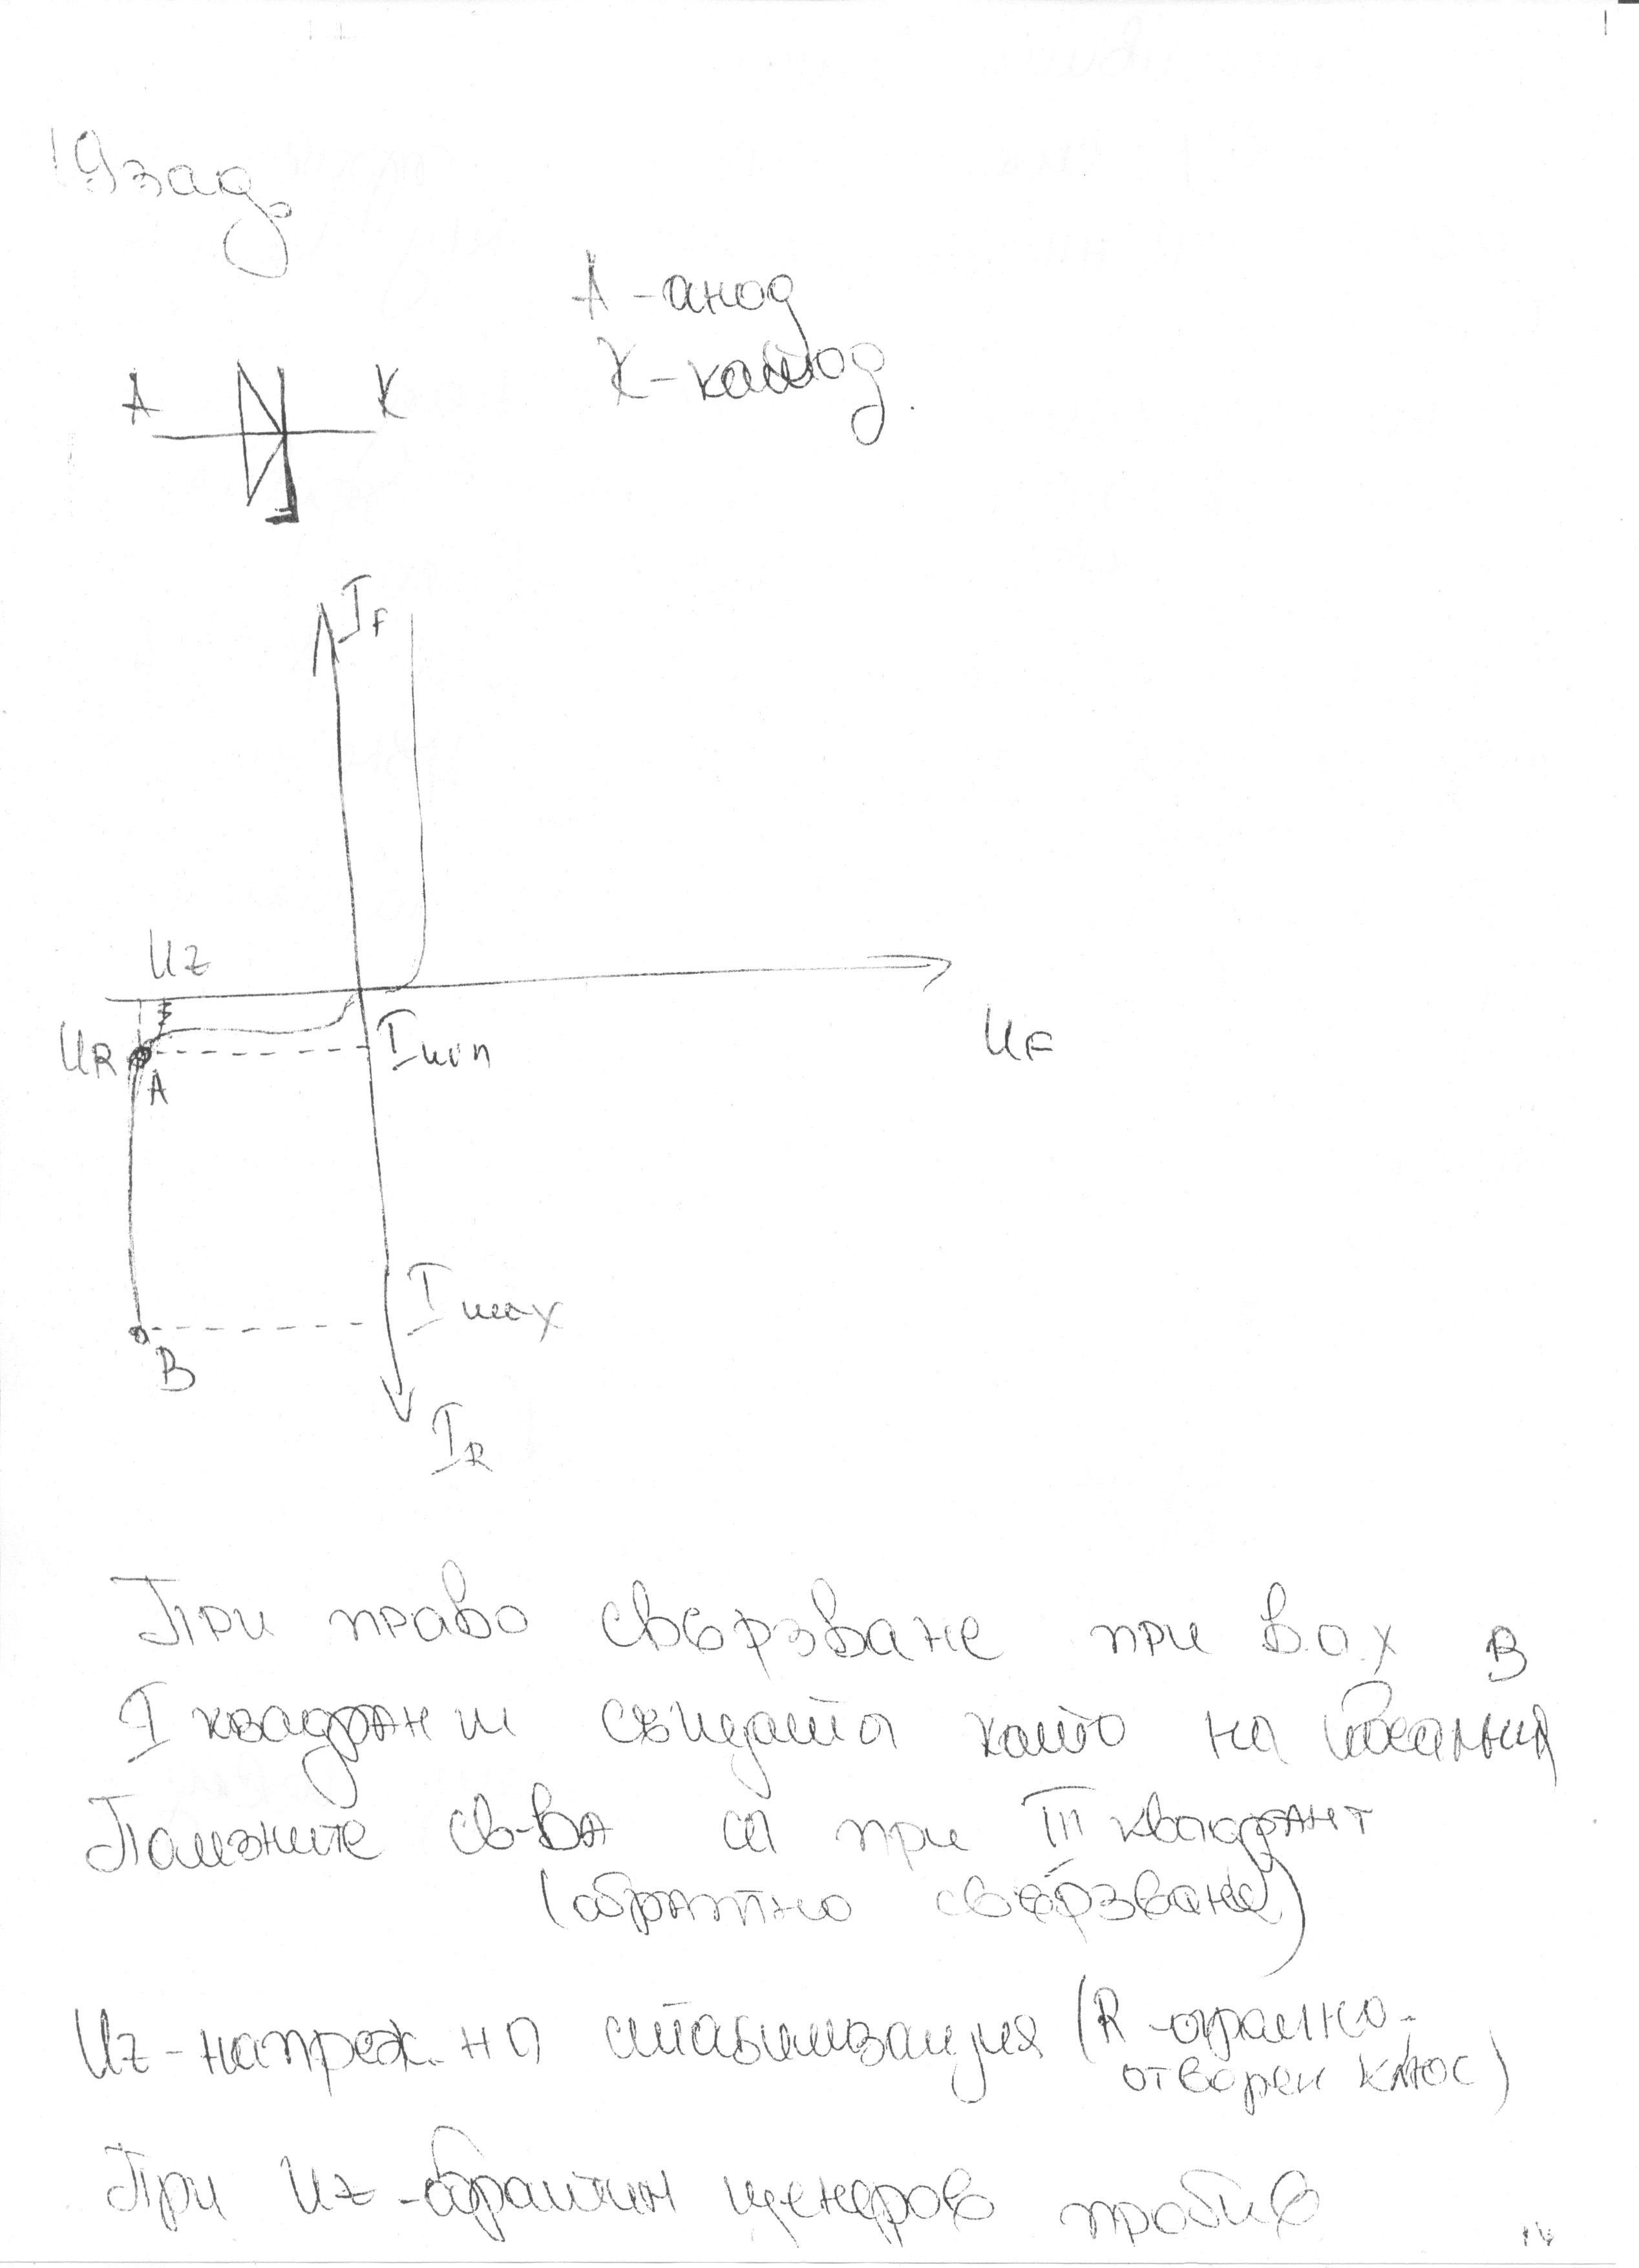 19 зад.
А - анод
К - катод.
А К
IF
Uz
UR
A
Imin
UF
Imax
B
IR
При право свързване при ВАХ в
I квадрант същата като на идеалния
Полезните св-ва са при III квадрант
(обратно свързване)
Uz - напреж. на стабилизация (R -
отворен ключ)
При Uz - обратим ценеров пробив